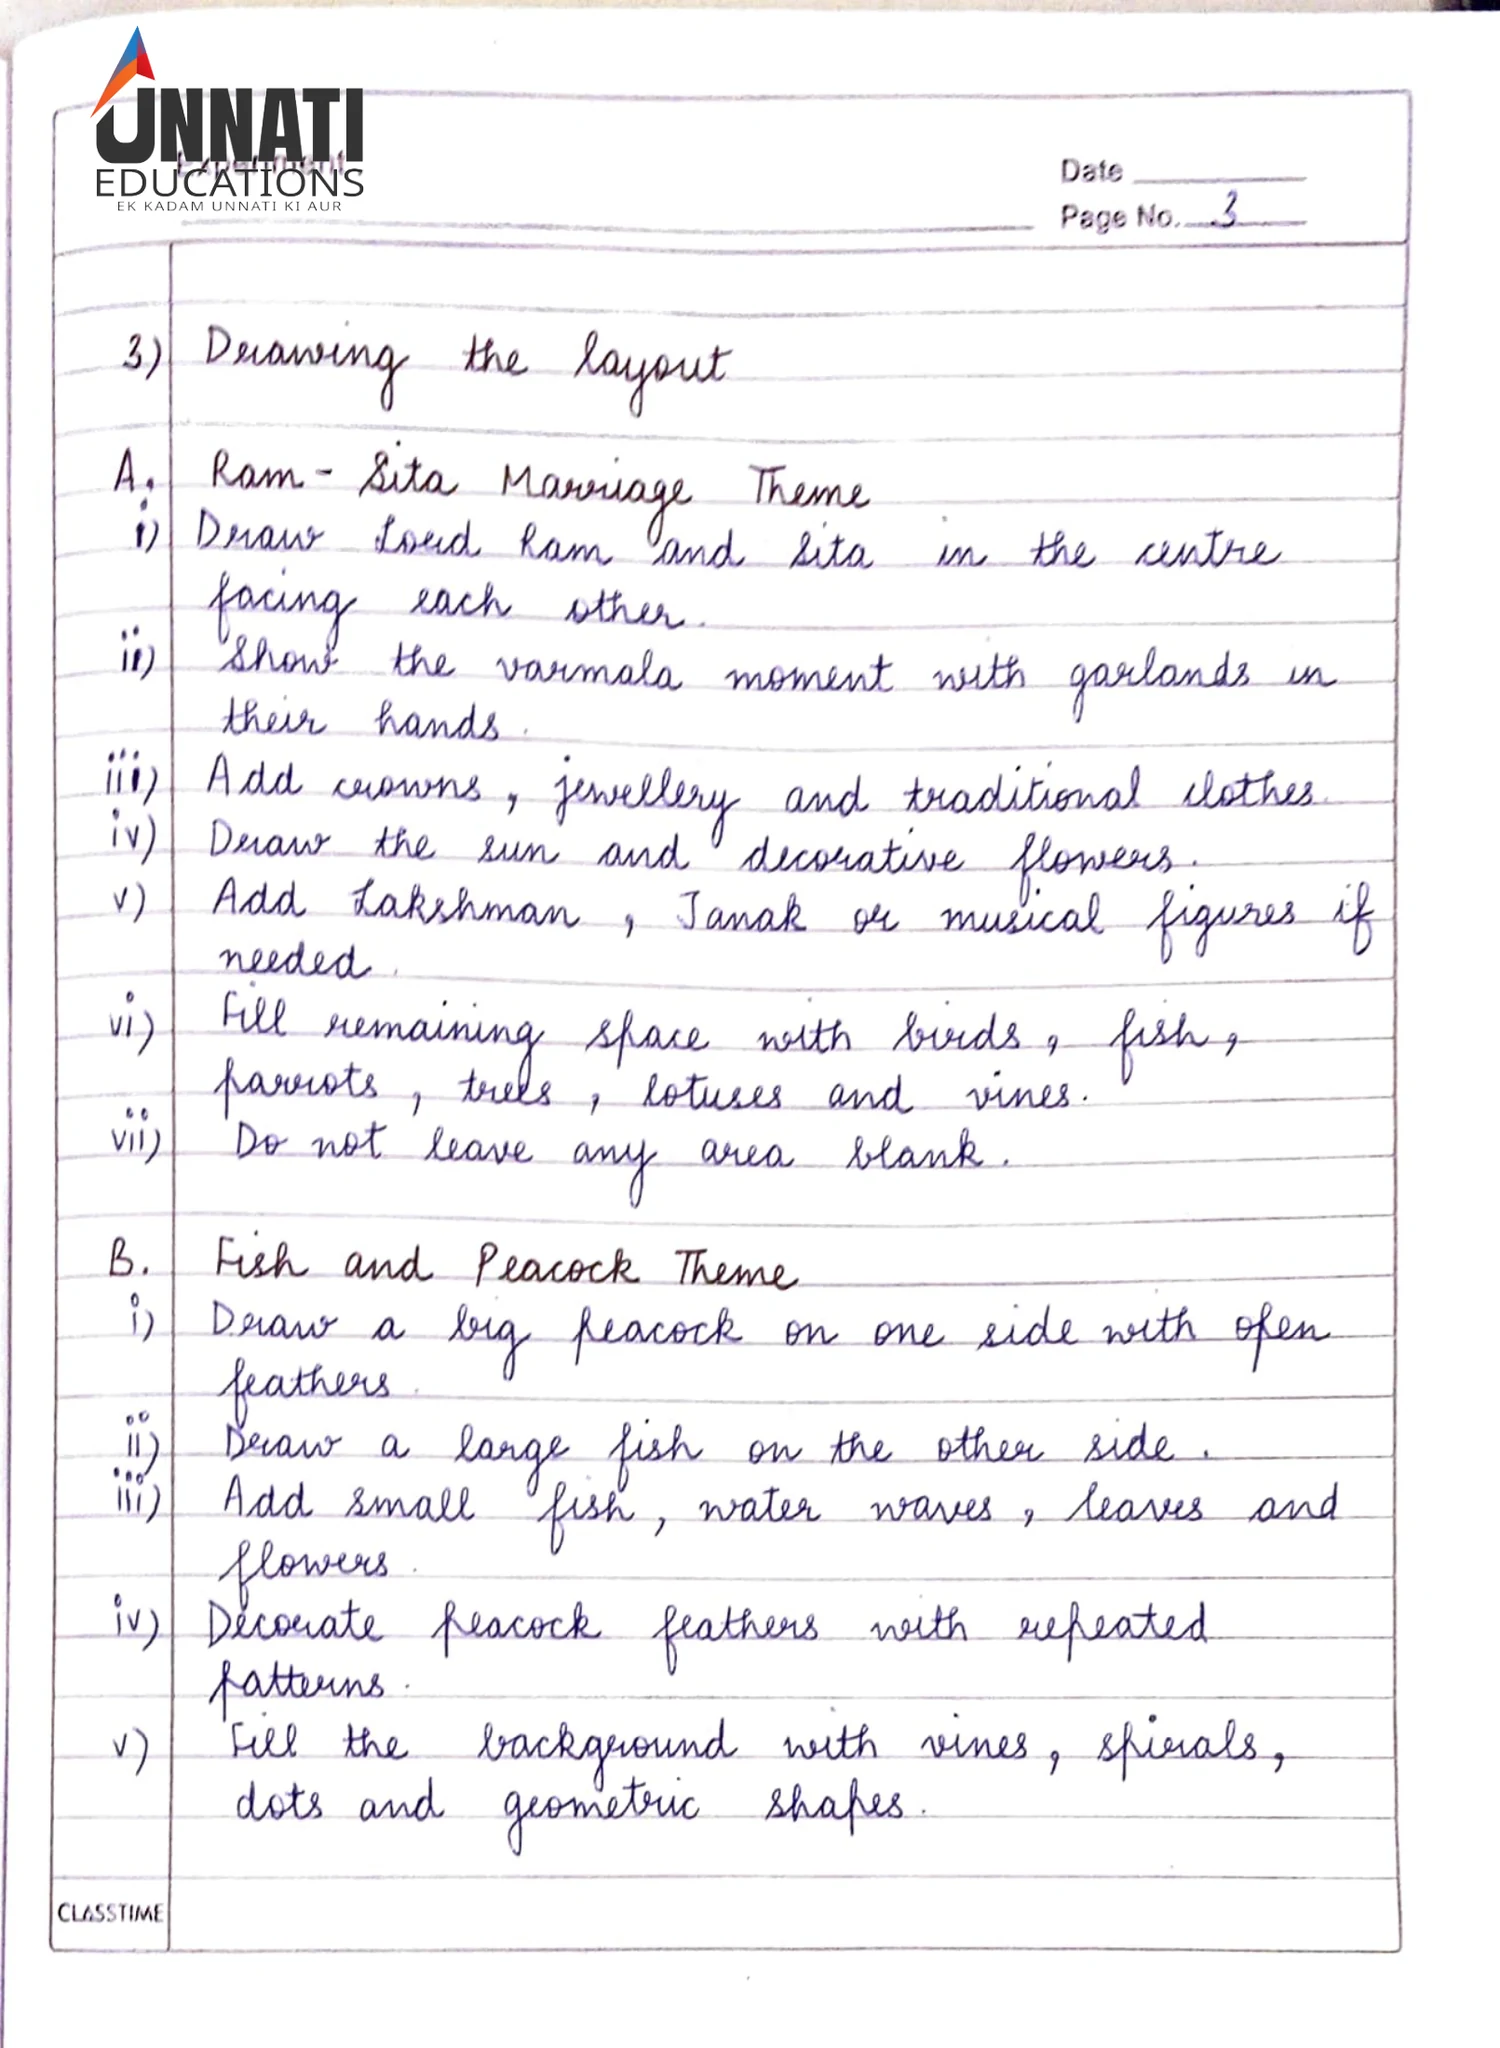 UNNATI
EDUCATIONS
EK KADAM UNNATI KI AUR
Experiment
Date
Page No. 3
3) Drawing the layout
A. Ram - Sita Marriage Theme
i) Draw Lord Ram and Sita in the centre
facing each other.
ii) Show the varmala moment with garlands in
their hands.
iii) Add crowns, jewellery and traditional clothes.
iv) Draw the sun and decorative flowers.
v) Add Lakshman, Janak or musical figures if
needed.
vi) Fill remaining space with birds, fish,
parrots, trees, lotuses and vines.
vii) Do not leave any area blank.
B. Fish and Peacock Theme
i) Draw a big peacock on one side with open
feathers.
ii) Draw a large fish on the other side.
iii) Add small fish, water waves, leaves and
flowers.
iv) Decorate peacock feathers with repeated
patterns.
v) Fill the background with vines, spirals,
dots and geometric shapes.
CLASSTIME